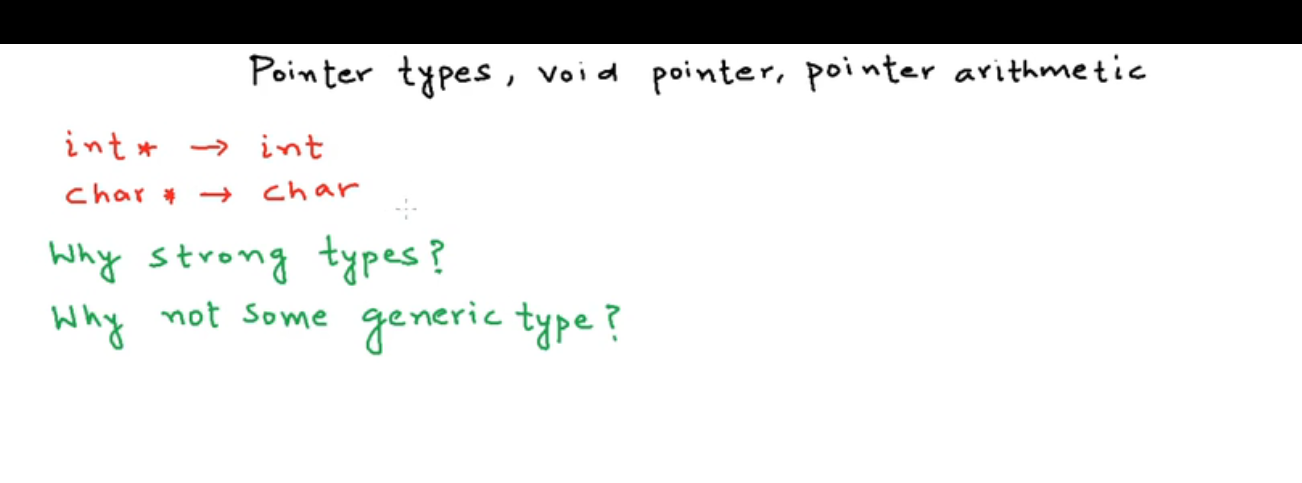 Pointer types, void pointer, pointer arithmetic
int* → int
char* → char
Why strong types?
Why not some generic type?